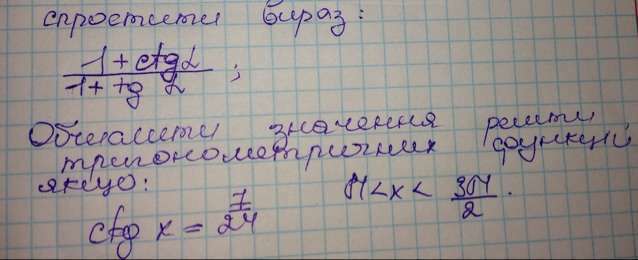 спростити вираз:
1 + ctg α
1 + tg α ;
Обчислити значення решти
тригонометричних функцій,
якщо:
ctg x = 7/24 π < x < 3π/2 .